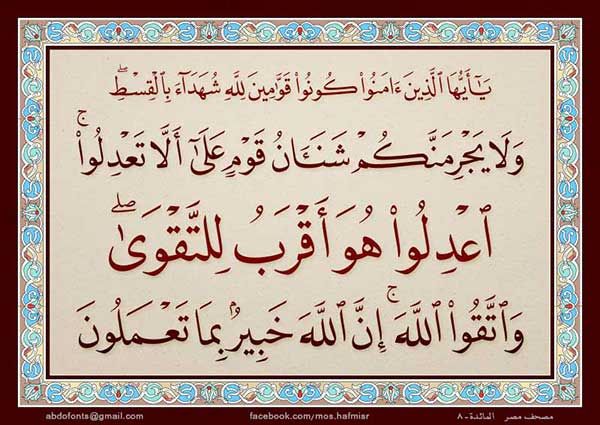 يَـٰٓأَيُّهَا ٱلَّذِينَ ءَامَنُوا۟ كُونُوا۟ قَوَّٰمِينَ لِلَّهِ شُهَدَآءَ بِٱلْقِسْطِ ۖ
وَلَا يَجْرِمَنَّكُمْ شَنَـَٔانُ قَوْمٍ عَلَىٰٓ أَلَّا تَعْدِلُوا۟ ۚ
ٱعْدِلُوا۟ هُوَ أَقْرَبُ لِلتَّقْوَىٰ ۖ
وَٱتَّقُوا۟ ٱللَّهَ ۚ إِنَّ ٱللَّهَ خَبِيرٌۢ بِمَا تَعْمَلُونَ
مصحف مصر المائدة - ٨ facebook.com/mos.hafmisr abdofonts@gmail.com